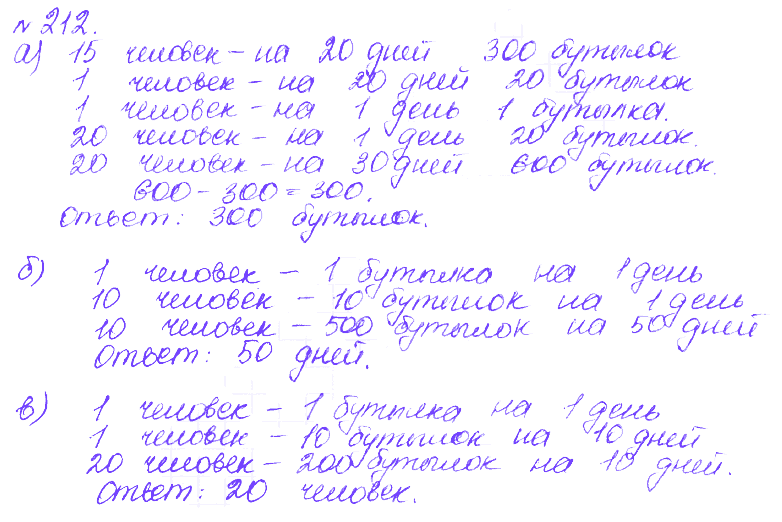 № 212.
а) 15 человек – на 20 дней 300 бутылок
1 человек – на 20 дней 20 бутылок
1 человек – на 1 день 1 бутылка.
20 человек – на 1 день 20 бутылок.
20 человек – на 30 дней 600 бутылок.
600 – 300 = 300.
Ответ: 300 бутылок.
б) 1 человек – 1 бутылка на 1 день
10 человек – 10 бутылок на 1 день
10 человек – 500 бутылок на 50 дней
Ответ: 50 дней.
в) 1 человек – 1 бутылка на 1 день
1 человек – 10 бутылок на 10 дней
20 человек – 200 бутылок на 10 дней.
Ответ: 20 человек.